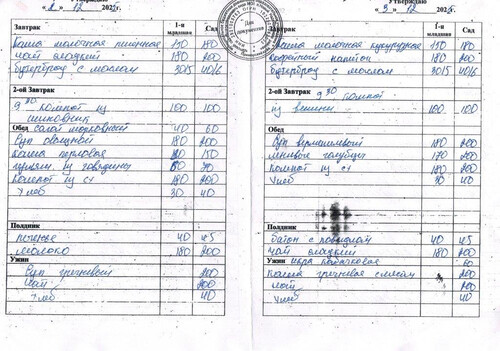 Утверждаю
« 2 » 12 202
1-я младшая Сад
Завтрак
Каша молочная пшенная 150 180
чай сладкий 180 200
бутерброд с маслом 30/5 40/6
2-ой Завтрак
9 30 компот из 100 100
шиповник
Обед салат морковный 40 60
Суп овощной 180 200
Каша перловая 150
из говядины
Компот из с/ 180 200
Хлеб 30 40
Полдник
печенье 40 45
Молоко 180 200
Ужин
Суп гречневый 200
Чай 200
Хлеб 40
Утверждаю
« 3 » 12 202
1-я младшая Сад
Завтрак
Каша молочная кукурузная 150 180
Кофейный напиток 180 200
бутерброд с маслом 30/5 40/6
2-ой Завтрак 9 30 компот
из вишни 100 100
Обед
Суп вермишелевый 180 200
ленивые голубцы 170 200
Компот из с/ 180 200
Хлеб 30 40
Полдник
батон с повидлом 40 45
чай сладкий 180 200
Ужин икра кабачковая 60
Каша гречневая с 200
чай 200
Хлеб 40
Для документов